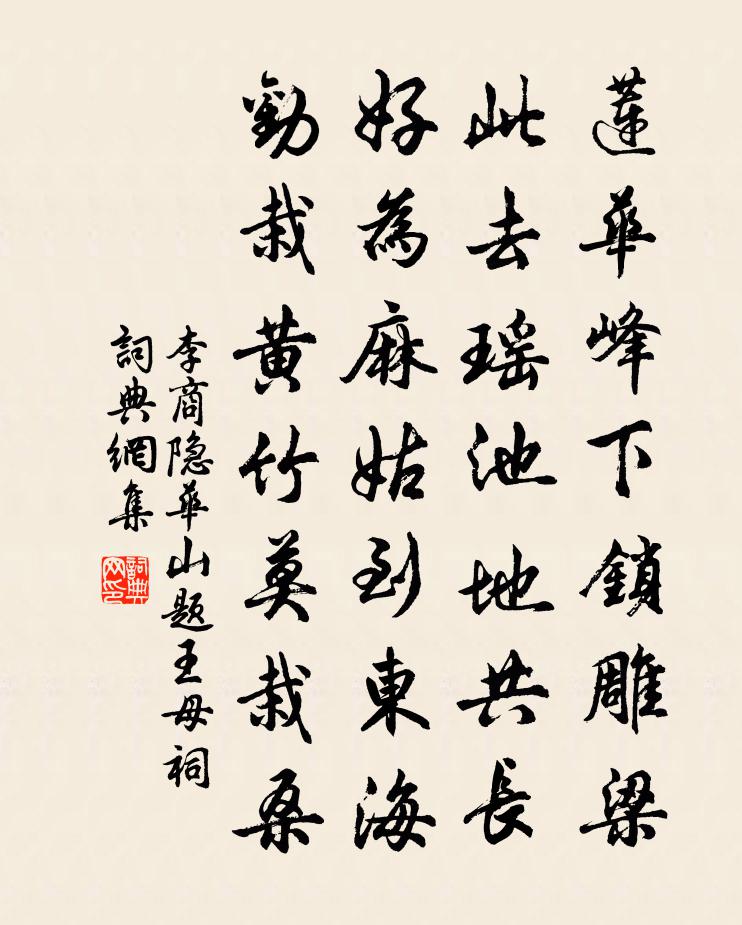 蓮華峰下鎖雕梁
此去瑶池地共長
好為麻姑到東海
勸栽黃竹莫栽桑
李商隐華山題王母祠
詞典網集
詞典网印